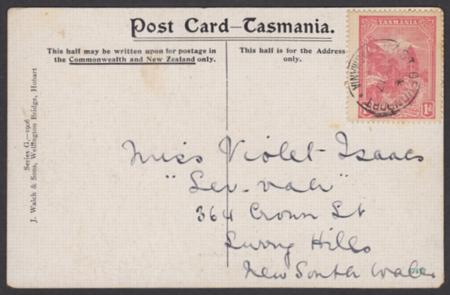 Post Card—Tasmania.
This half may be written upon for postage in
the Commonwealth and New Zealand only.
This half is for the Address
only.
TASMANIA
1D
Series G.—1908
J. Walch & Sons, Wellington Bridge, Hobart
Miss Violet Isaacs
364 Crown St
Surry Hills
New South Wales